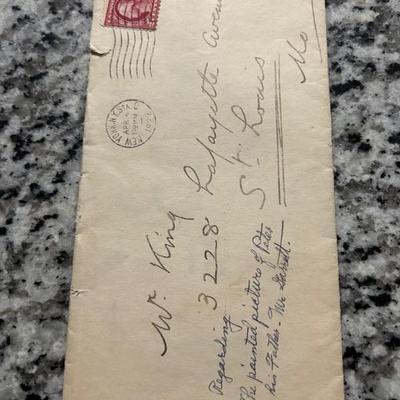 NEW YORK, N.Y. STA.
APR 4
1926
Mr. King
3228 Lafayette Avenue
St. Louis
Mo
Regarding
The painted picture of Peter
his Father - Mr Garrett.